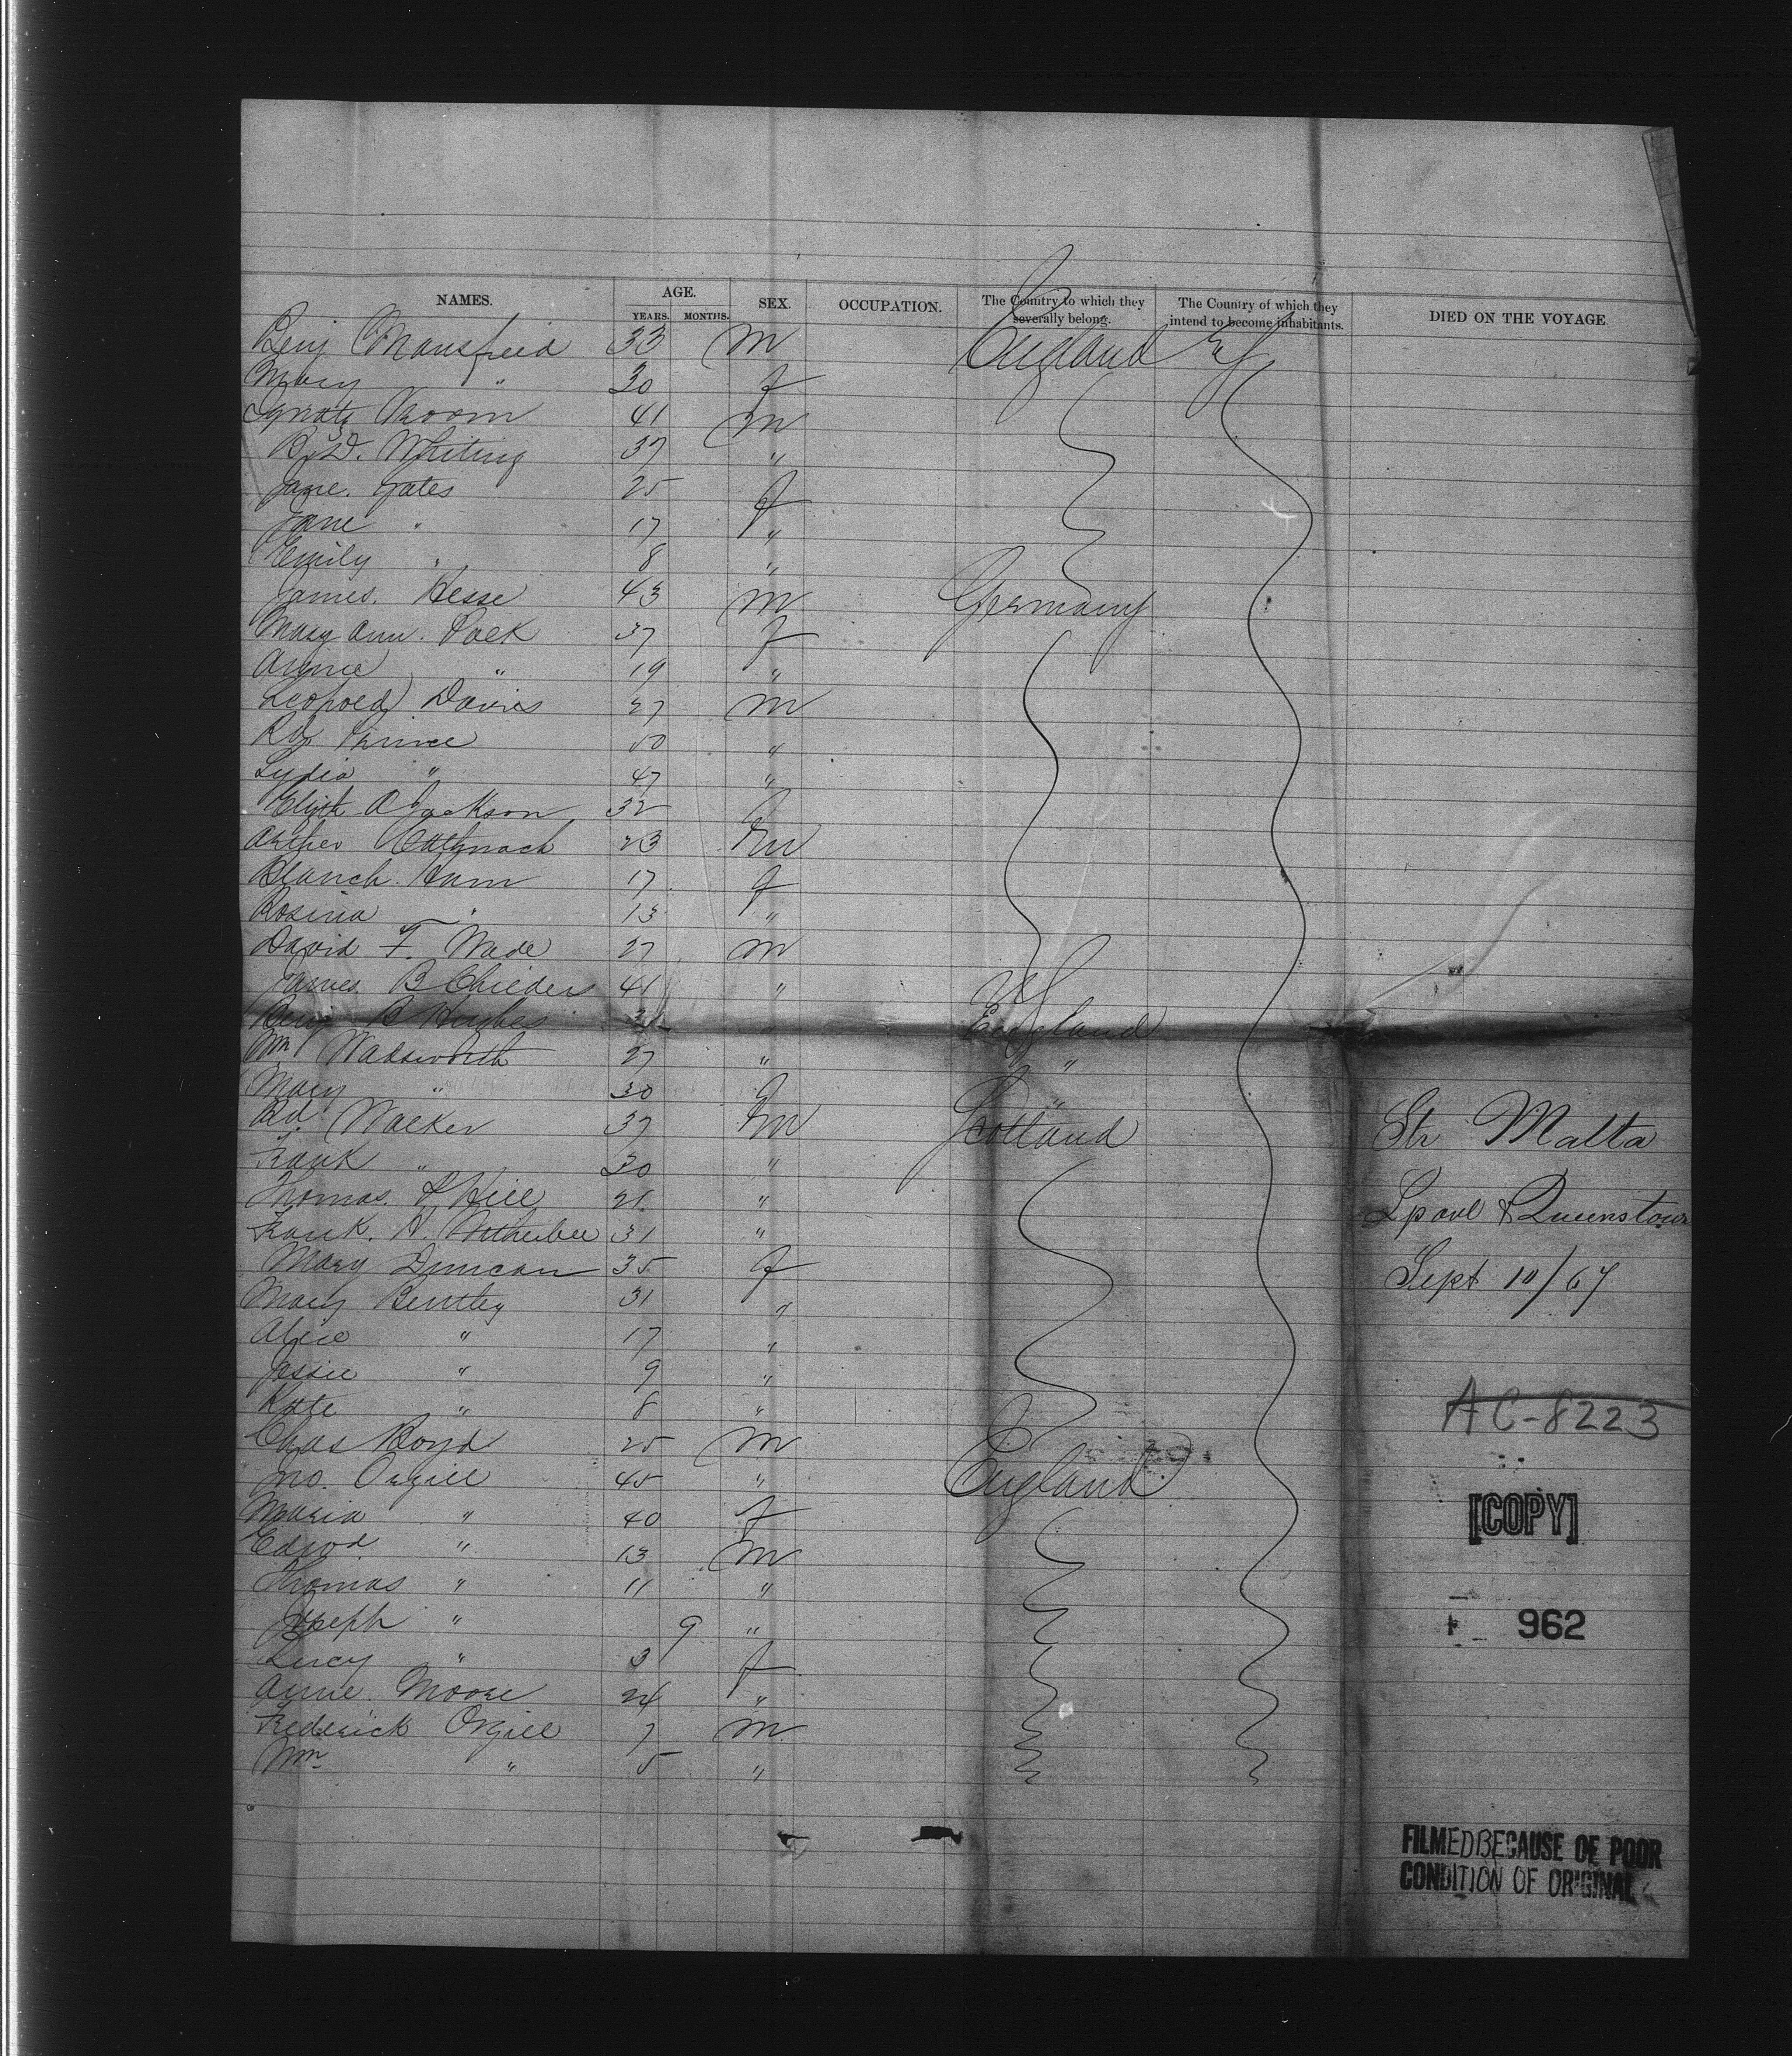 NAMES. AGE. SEX. OCCUPATION. The Country to which they severally belong. The Country of which they intend to become inhabitants. DIED ON THE VOYAGE.
YEARS. MONTHS.
Benj Mansfield 33 m England US
Mary " 30 f
Ignatz Kroom 41 m
B. D. Whiting 37 "
Jane. Yates 25 f
Jane " 17 "
Emily " 8 "
James. Hesse 43 m Germany
Mary Ann. Polk 37 f
Annie " 19 "
Leopold Davies 27 m
Rd Prince 50 "
Lydia " 47 "
Elizth A Jackson 32 f
Arther Cattnach 23 m
Blanch. Ham 17 f
Rosina " 13 "
David F. Wade 27 m
James B Childers 41 " US
Benj B Hughes England
Wm Wadsworth 27 " "
Mary " 30 f "
Rd. Walker 37 m Scotland
Frank " 30 "
Thomas. P Hill 21. "
Frank. A. Witherbee 31 "
Mary Duncan 35 f
Mary Bentley 31 "
Alice " 17 "
Jessie " 9 "
Kate " 8 "
Chas Boyd 25 m
Jno. Orgill 45 " England
Maria " 40 f
Edwd " 13 m
Thomas " 11 "
Joseph " 9 "
Lucy " 3 f
Anne. Moore 24 "
Frederick Orgill 7 m
Wm " 5 "
Str Malta
Lpool & Queenstown
Sept 10/67
AC-8223
[COPY]
962
FILMED BECAUSE OF POOR
CONDITION OF ORIGINAL